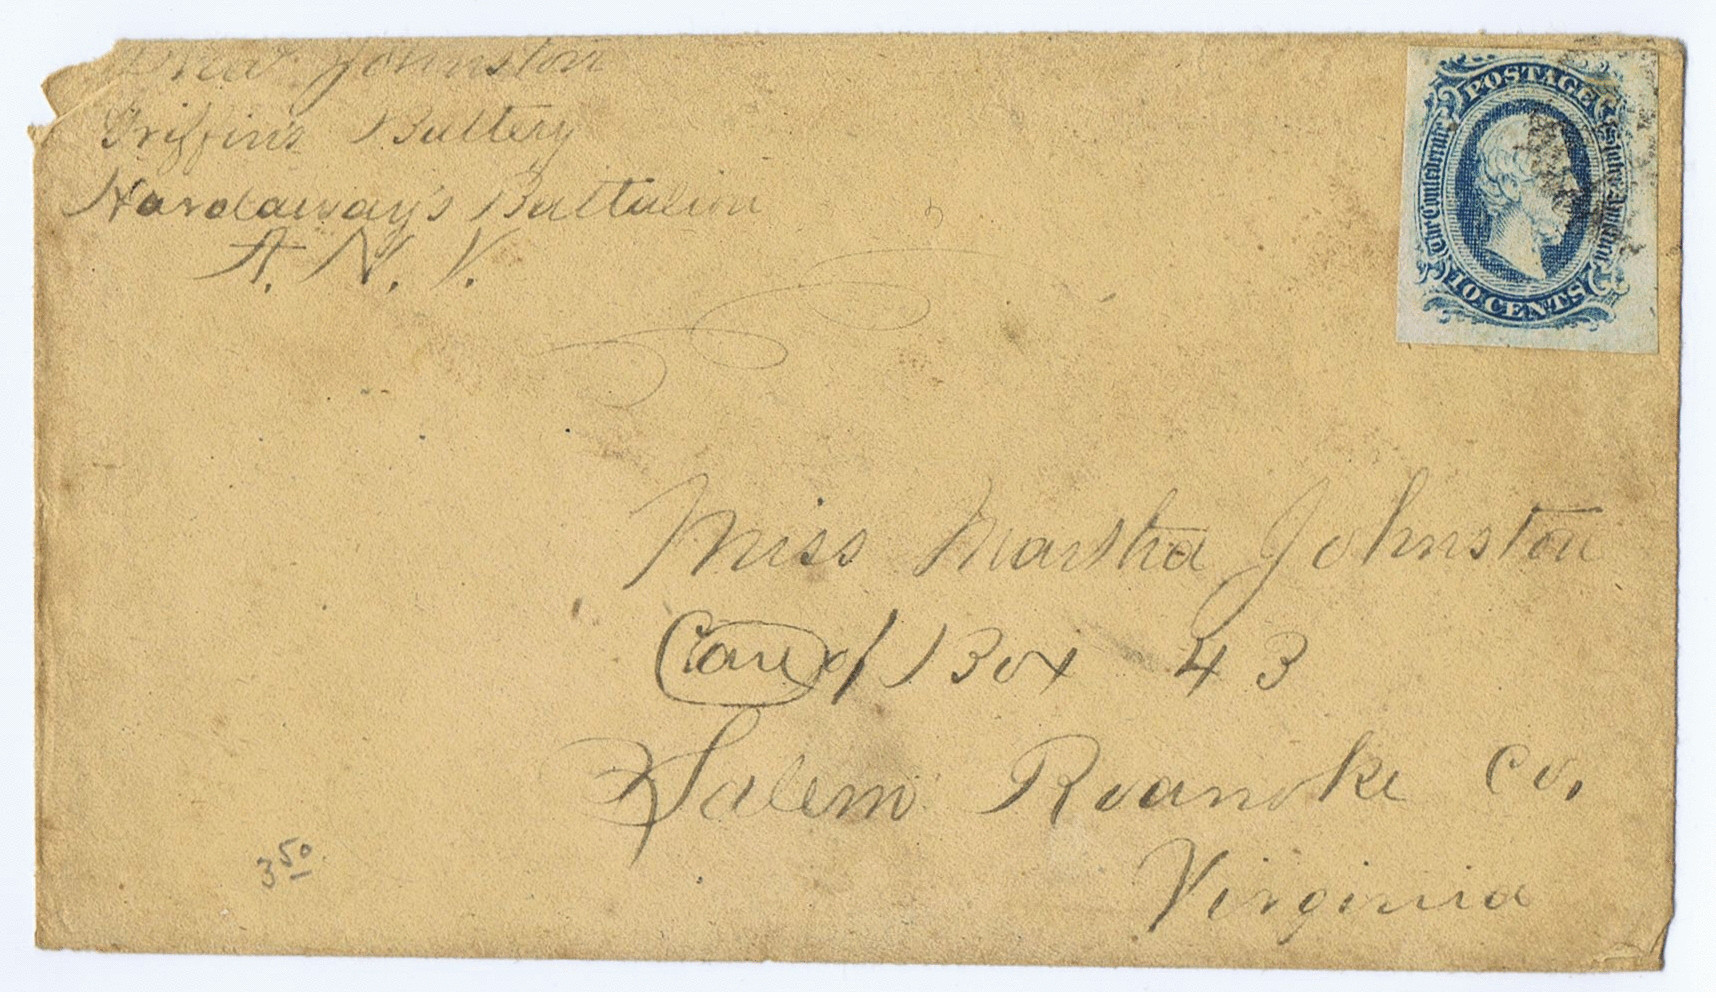 Johnston
Griffin's Battery
Hardaway's Battalion
A. N. V.
POSTAGE
The Confederate
States of America
10 CENTS
Miss Martha Johnston
Care of Box 43
Salem Roanoke Co,
Virginia
3 50